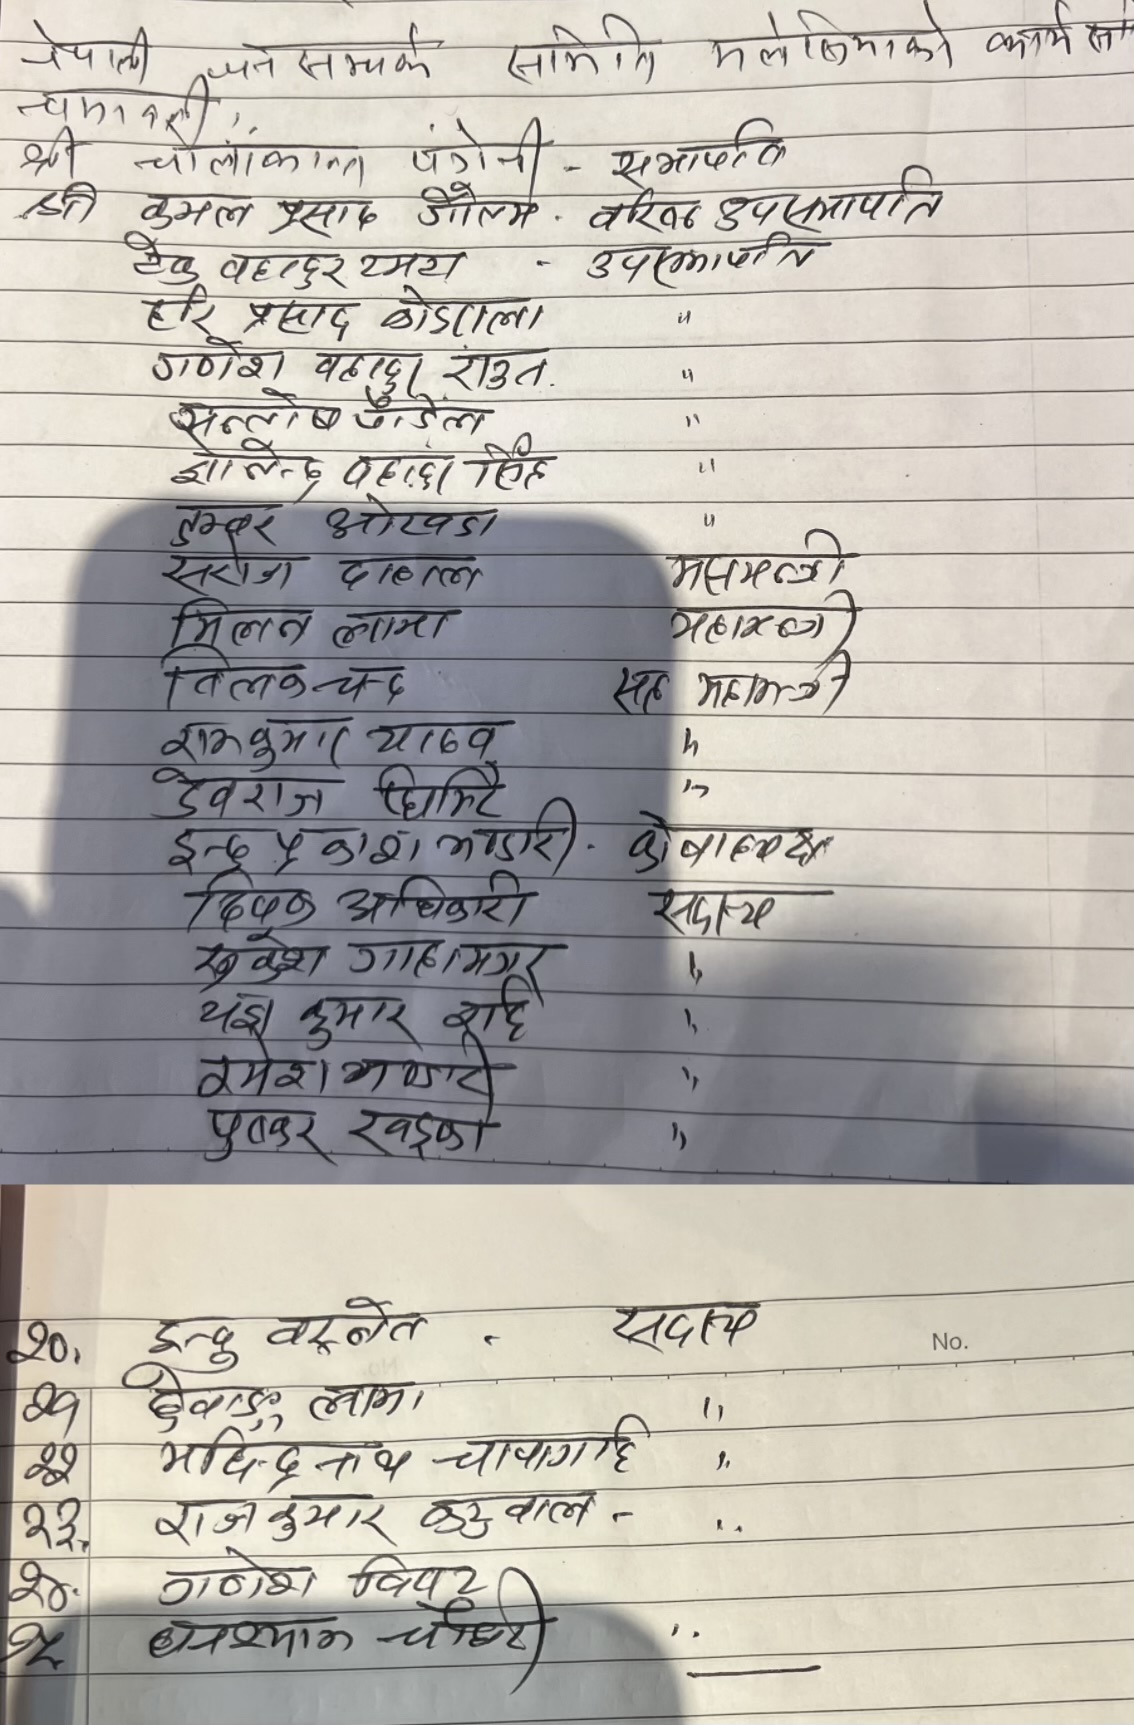 नेपाली जनसम्पर्क समिति मलेसियाको कार्य
नामावली
श्री पंगेनी - सभापति
श्री कुमल प्रसाद गौतम - वरिष्ठ उपसभापति
टेकु बहादुर - उपसभापति
हरि प्रसाद कोइराला "
गणेश बहादुर राउत "
सन्तोष पौडेल "
ज्ञानेन्द्र बहादुर सिंह "
डम्बर ओखेडा "
सरोज दाहाल महामन्त्री
मिलन लामा महामन्त्री
तिलक चन्द सह महामन्त्री
रामकुमार यादव "
देवराज घिमिरे "
इन्द्र प्रकाश भण्डारी - कोषाध्यक्ष
दिपक अधिकारी सदस्य
गाहामगर "
यज्ञ कुमार शाहि "
रमेश भण्डारी "
पुस्कर खड्का "
No.
२०. इन्दु बस्नेत - सदस्य
२१ छेवाङ्ग लामा "
२२ मछिन्द्र नाथ चापागाई "
२३. राजकुमार कटुवाल - "
२४. गणेश
२५ घनश्याम चौधरी "